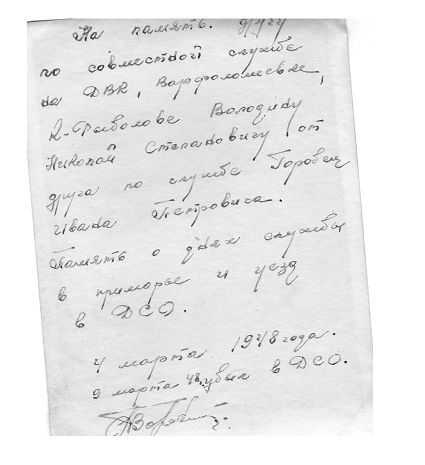 На память. другу
по совместной службе
на ДВК, Варфоломеевке,
К-Рыболове Володину
Николай Степановичу от
друга по службе Горовец
Ивана Петровича.
Память о днях службы
в приморье и уезд
в ДСО.
4 марта 1948 года.
9 марта 48. убыл в ДСО.